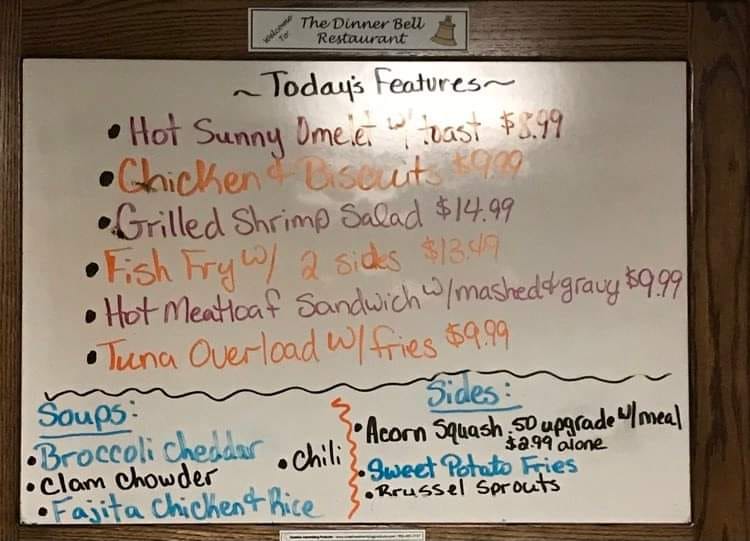 Welcome To:
The Dinner Bell
Restaurant
~ Today's Features ~
• Hot Sunny Omelet w/ toast $8.99
• Chicken & Biscuits $9.99
• Grilled Shrimp Salad $14.99
• Fish Fry w/ 2 sides $13.49
• Hot Meatloaf Sandwich w/mashed & gravy $9.99
• Tuna Overload w/ fries $9.99
Soups:
• Broccoli Cheddar
• Clam Chowder
• Fajita Chicken & Rice
• Chili
Sides:
• Acorn Squash .50 upgrade w/ meal
$2.99 alone
• Sweet Potato Fries
• Brussel Sprouts